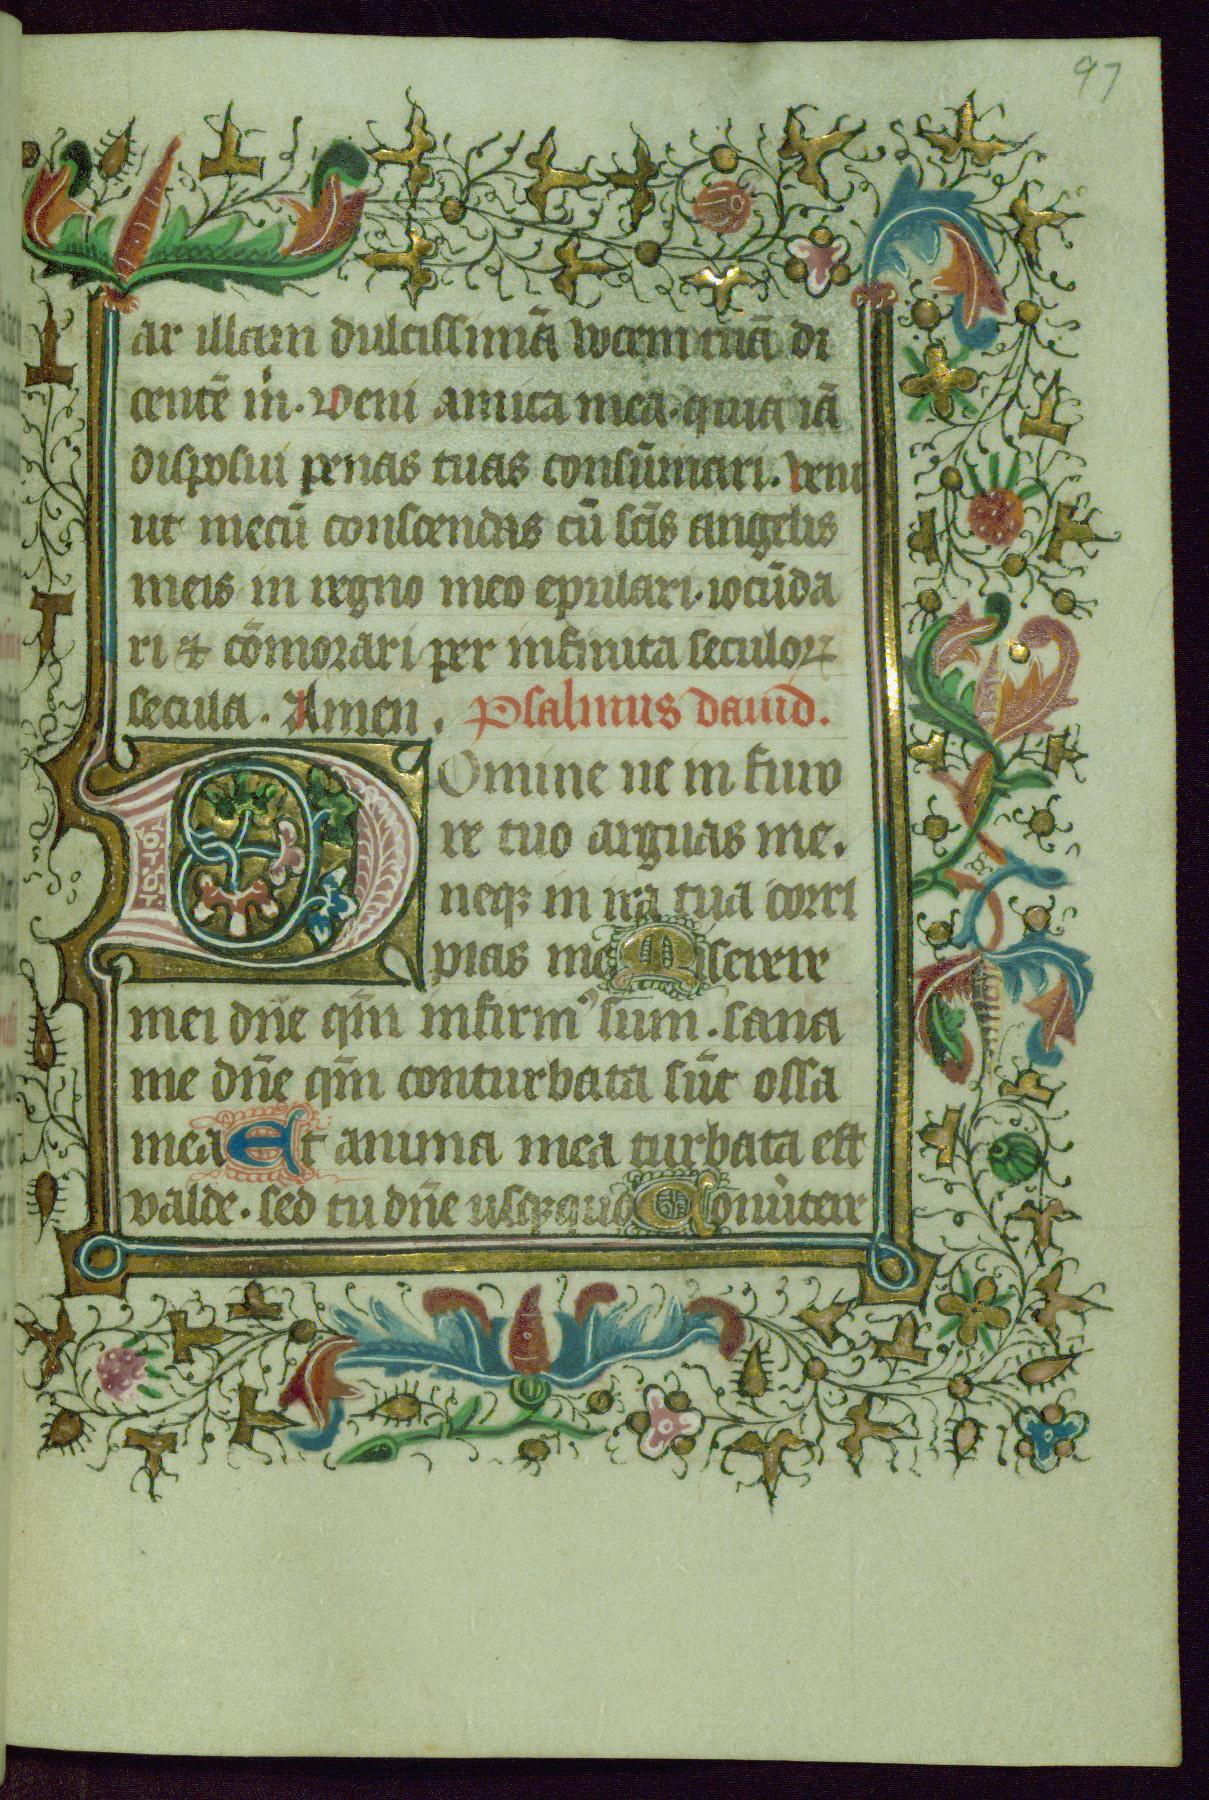 97
ar illam dulcissimā vocem tuā di
centē m̄i. Veni amica mea. quia iā
disposui penas tuas consūmari. Veni
ut mecū conscendas cū sc̄is angelis
meis in regno meo epulari. iocūda
ri ⁊ cōmorari per infinita seculoꝝ
secula. Amen. Psalmus dauid.
Domine ne in furo
re tuo arguas me.
neqꝫ in ira tua corri
pias me Miserere
mei dn̄e qm̄ infirmꝰ sum. sana
me dn̄e qm̄ conturbata sūt ossa
mea Et anima mea turbata est
valde. sed tu dn̄e usqꝫquo Conūtere